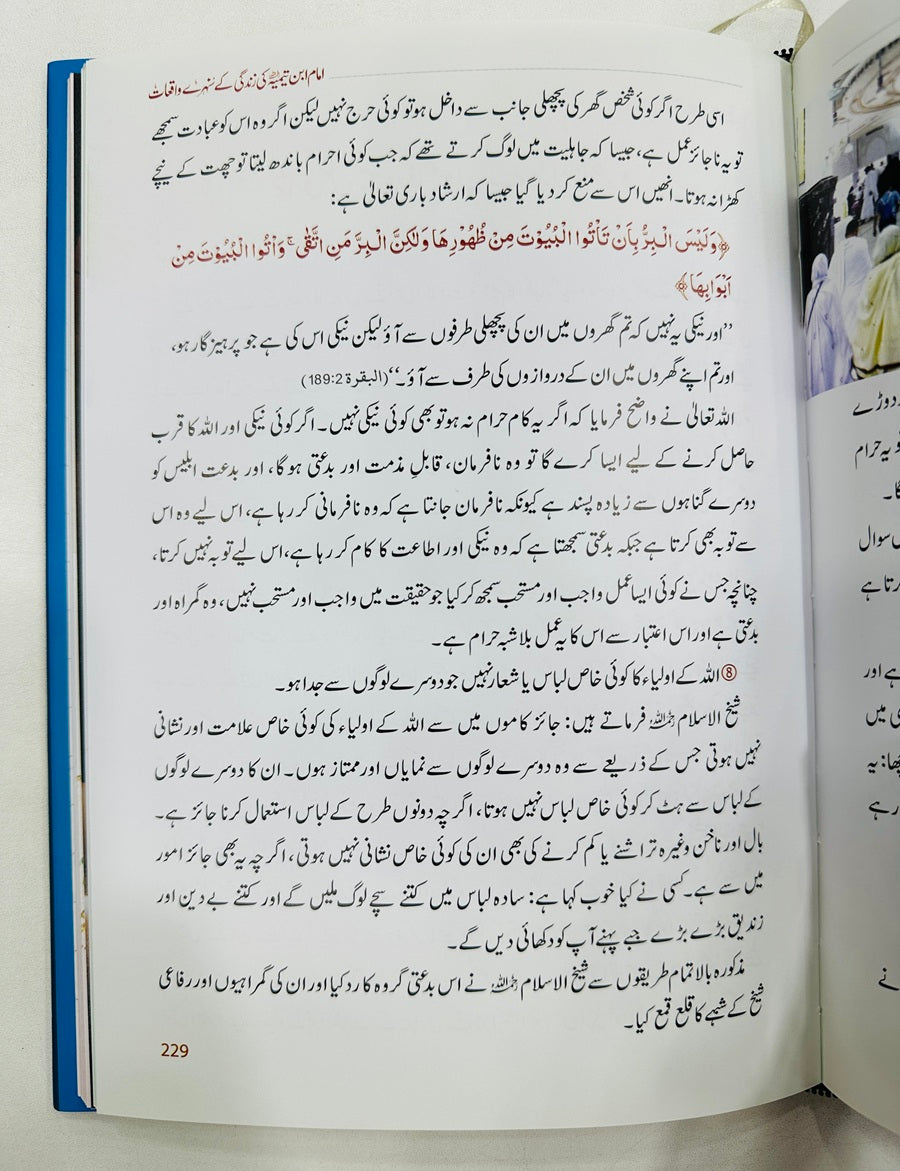 امام ابن تیمیہ رحمہ اللہ کی زندگی کے سنہرے واقعات
اسی طرح اگر کوئی شخص گھر کی پچھلی جانب سے داخل ہو تو کوئی حرج نہیں لیکن اگر وہ اس کو عبادت سمجھے
تو یہ ناجائز عمل ہے، جیسا کہ جاہلیت میں لوگ کرتے تھے کہ جب کوئی احرام باندھ لیتا تو چھت کے نیچے
کھڑا نہ ہوتا۔ انھیں اس سے منع کر دیا گیا جیسا کہ ارشاد باری تعالیٰ ہے:
﴿وَلَيْسَ الْبِرُّ بِاَنْ تَاْتُوا الْبُيُوْتَ مِنْ ظُهُوْرِهَا وَلٰكِنَّ الْبِرَّ مَنِ اتَّقٰى ۚ وَاْتُوا الْبُيُوْتَ مِنْ
اَبْوَابِهَا﴾
’’اور نیکی یہ نہیں کہ تم گھروں میں ان کی پچھلی طرفوں سے آؤ لیکن نیکی اس کی ہے جو پرہیزگار ہو،
اور تم اپنے گھروں میں ان کے دروازوں کی طرف سے آؤ۔‘‘ (البقرۃ 189:2)
اللہ تعالیٰ نے واضح فرمایا کہ اگر یہ کام حرام نہ ہو تو بھی کوئی نیکی نہیں۔ اگر کوئی نیکی اور اللہ کا قرب
حاصل کرنے کے لیے ایسا کرے گا تو وہ نافرمان، قابلِ مذمت اور بدعتی ہوگا، اور بدعت ابلیس کو
دوسرے گناہوں سے زیادہ پسند ہے کیونکہ نافرمان جانتا ہے کہ وہ نافرمانی کر رہا ہے، اس لیے وہ اس
سے توبہ بھی کرتا ہے جبکہ بدعتی سمجھتا ہے کہ وہ نیکی اور اطاعت کا کام کر رہا ہے، اس لیے توبہ نہیں کرتا،
چنانچہ جس نے کوئی ایسا عمل واجب اور مستحب سمجھ کر کیا جو حقیقت میں واجب اور مستحب نہیں، وہ گمراہ اور
بدعتی ہے اور اس اعتبار سے اس کا یہ عمل بلاشبہ حرام ہے۔
⑧ اللہ کے اولیاء کا کوئی خاص لباس یا شعار نہیں جو دوسرے لوگوں سے جدا ہو۔
شیخ الاسلام رحمہ اللہ فرماتے ہیں: جائز کاموں میں سے اللہ کے اولیاء کی کوئی خاص علامت اور نشانی
نہیں ہوتی جس کے ذریعے سے وہ دوسرے لوگوں سے نمایاں اور ممتاز ہوں۔ ان کا دوسرے لوگوں
کے لباس سے ہٹ کر کوئی خاص لباس نہیں ہوتا، اگرچہ دونوں طرح کے لباس استعمال کرنا جائز ہے۔
بال اور ناخن وغیرہ تراشنے یا کم کرنے کی بھی ان کی کوئی خاص نشانی نہیں ہوتی، اگرچہ یہ بھی جائز امور
میں سے ہے۔ کسی نے کیا خوب کہا ہے: سادہ لباس میں کتنے سچے لوگ ملیں گے اور کتنے بے دین اور
زندیق بڑے بڑے جبے پہنے آپ کو دکھائی دیں گے۔
مذکورہ بالا تمام طریقوں سے شیخ الاسلام رحمہ اللہ نے اس بدعتی گروہ کا رد کیا اور ان کی گمراہیوں اور رفاعی
شیخ کے شبہے کا قلع قمع کیا۔
229
دوڑے
یہ حرام
گا۔
سوال
کرتا ہے
ہے اور
میں
یہ
رہے
نے